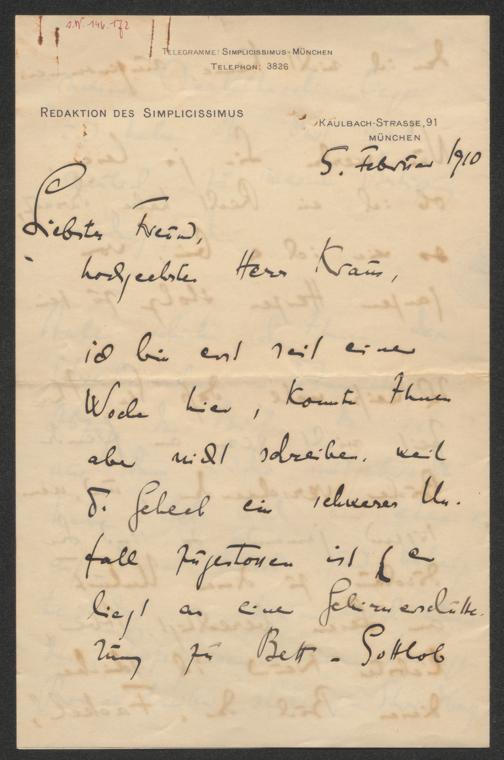 I.N. 146.172
TELEGRAMME: SIMPLICISSIMUS-MÜNCHEN
TELEPHON: 3826
REDAKTION DES SIMPLICISSIMUS
KAULBACH-STRASSE, 91
MÜNCHEN
5. Februar 1910
Liebster Freund,
hochgeehrter Herr Kraus,
ich bin erst seit einer
Woche hier, konnte Ihnen
aber nicht schreiben, weil
D. Geheeb ein schwerer Un-
fall zugestossen ist (er
liegt an einer Gehirnerschütte-
rung zu Bett – Gottlob